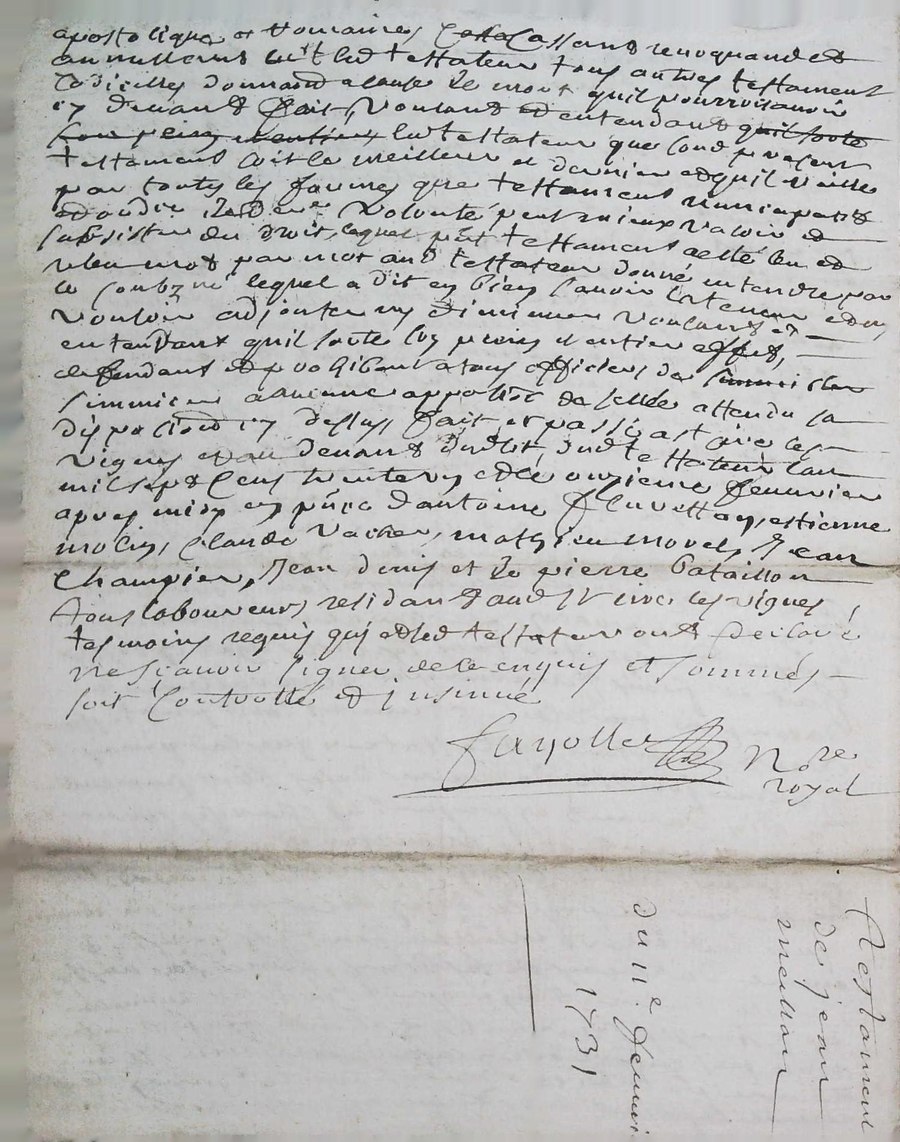 apostolique et Romaine, Cassant revoquand et
annullant led testateur tous autres testament
Codicilles donnaons a cause de mort quil pourroit avoir
cy devant fait, voulant et entendant quil sorte
son plein led testateur que sond present
testament soit le meilleur et dernier et quil vaille
par toutes les formes que testament nuncupatif
et dre volonté peut mieux valoir et
subsister du droit, lequel pnt testament a esté leu et
releu mot par mot aud testateur donné entendre par
le soubzné lequel a dit en bien scavoir la teneur et ny
vouloir adjouter ny diminuer voulant et
entendant quil sorte son plein et entier effect,
deffendant et prohibant a tous officiers de
simmiscer a aucune apposition de scellé attendu sa
disposition cy dessus, fait et passé a st les
vignes et au devant dudt testateur lan
mil sept cent trente un et le onzieme fevrier
apres midy en pnce dantoine flavettay, estienne
molin, Claude vacher, mathieu morel, Jean
Champier, Jean denis et pierre bataillon
tous laboureurs residant aud st les vignes
tesmoins requis qui et led testateur ont declaré
ne scavoir signer de ce enquis et sommés
soit Controllé et jnsinué
fayolle Nore
royal
testament
de jean
meillan
du 11e fevrier
1731